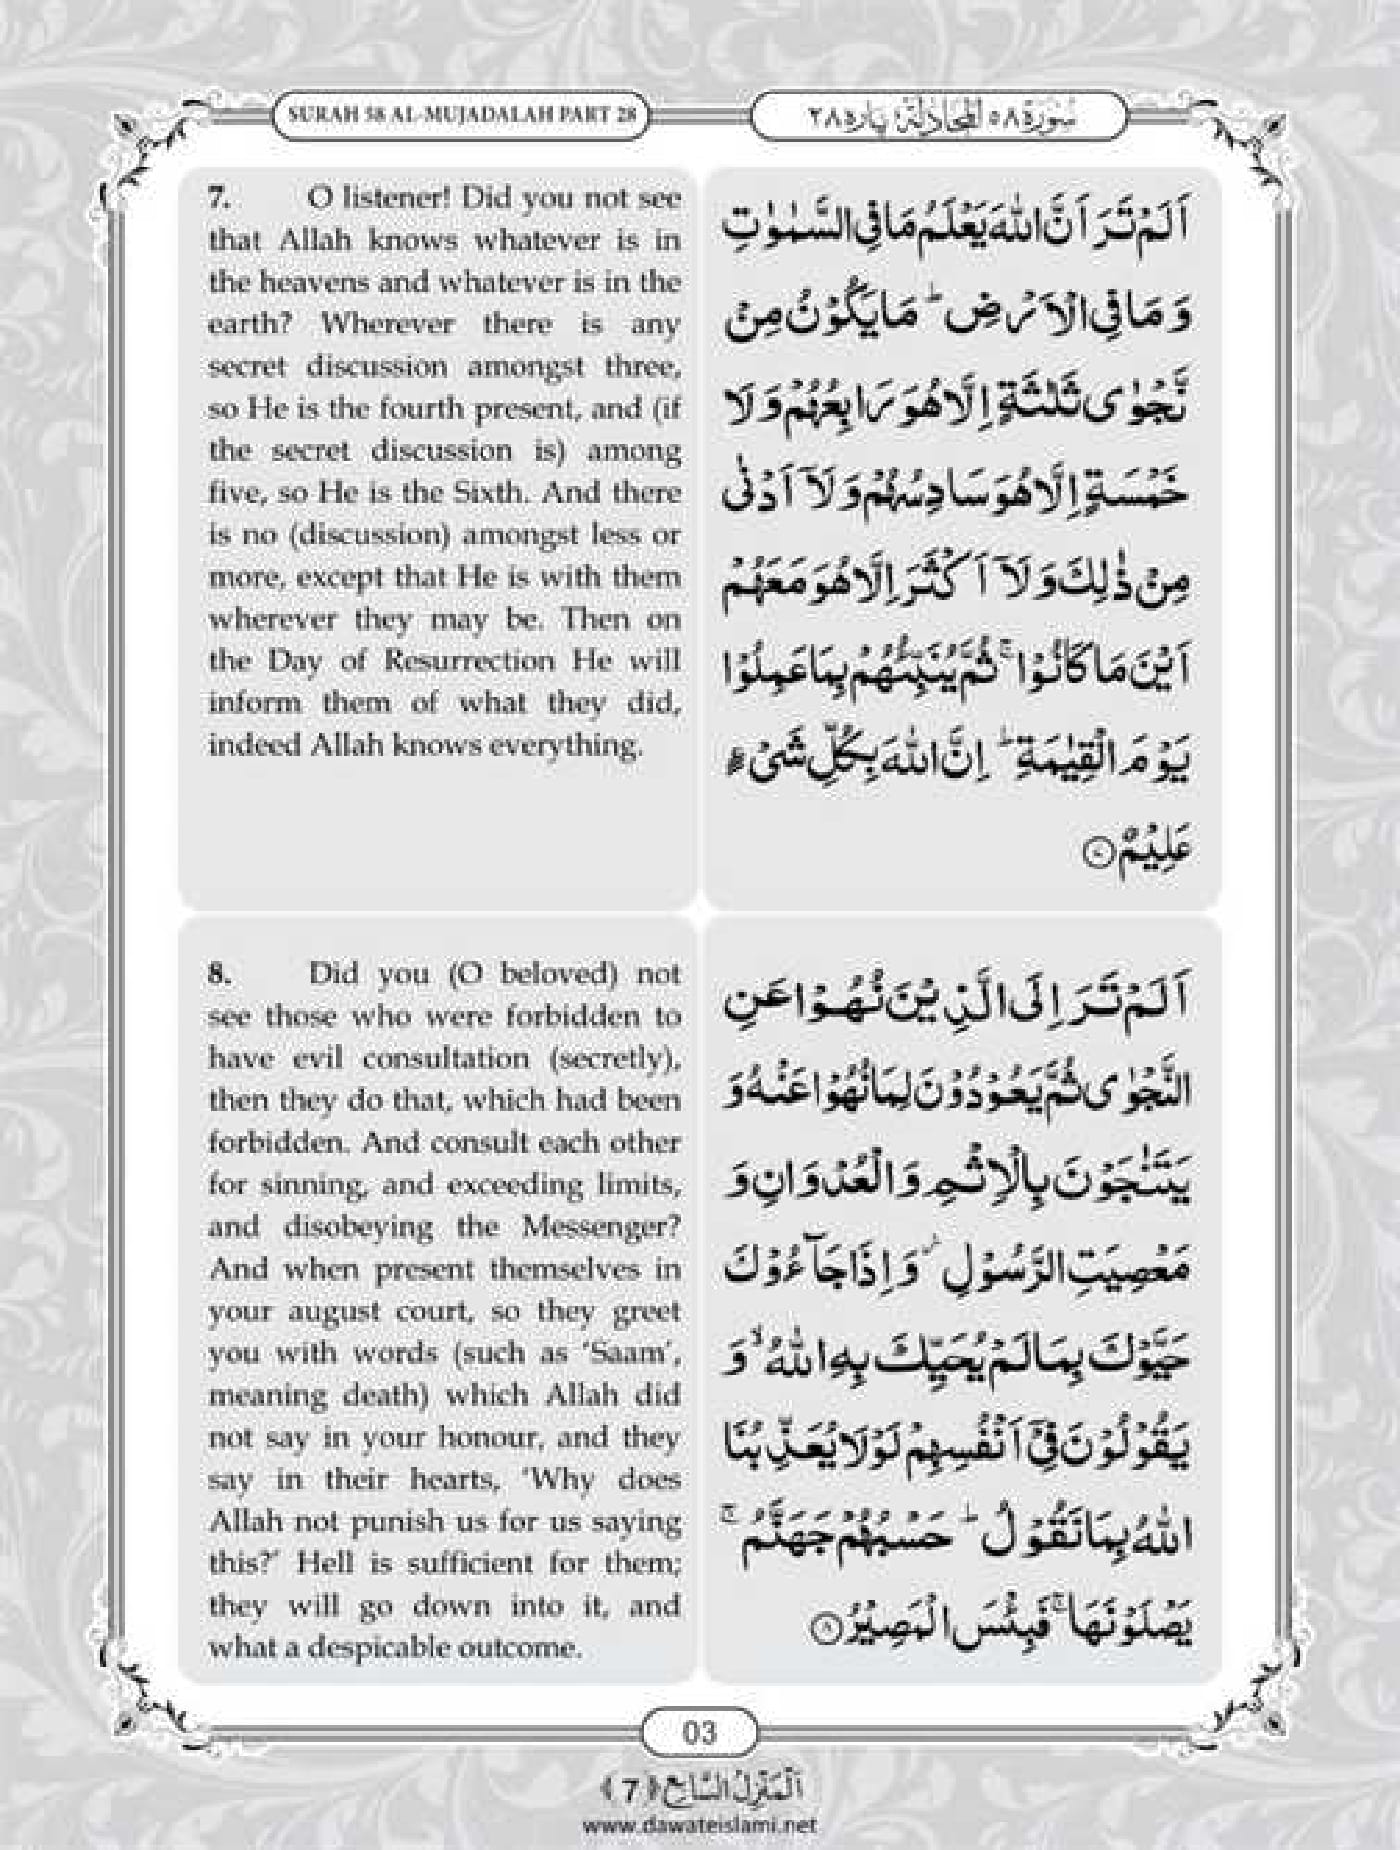 SURAH 58 AL-MUJADALAH PART 28
سُوْرَة ٥٨ اَلْمُجَادَلَة: پارہ ٢٨
7. O listener! Did you not see
that Allah knows whatever is in
the heavens and whatever is in the
earth? Wherever there is any
secret discussion amongst three,
so He is the fourth present, and (if
the secret discussion is) among
five, so He is the Sixth. And there
is no (discussion) amongst less or
more, except that He is with them
wherever they may be. Then on
the Day of Resurrection He will
inform them of what they did,
indeed Allah knows everything.
اَلَمْ تَرَ اَنَّ اللّٰهَ يَعْلَمُ مَا فِي السَّمٰوٰتِ
وَ مَا فِي الْاَرْضِ ؕ مَا يَكُوْنُ مِنْ
نَّجْوٰى ثَلٰثَةٍ اِلَّا هُوَ رَابِعُهُمْ وَ لَا
خَمْسَةٍ اِلَّا هُوَ سَادِسُهُمْ وَ لَاۤ اَدْنٰى
مِنْ ذٰلِكَ وَ لَاۤ اَكْثَرَ اِلَّا هُوَ مَعَهُمْ
اَيْنَ مَا كَانُوْا ۚ ثُمَّ يُنَبِّئُهُمْ بِمَا عَمِلُوْا
يَوْمَ الْقِيٰمَةِ ؕ اِنَّ اللّٰهَ بِكُلِّ شَيْءٍ
عَلِيْمٌ ۝٧
8. Did you (O beloved) not
see those who were forbidden to
have evil consultation (secretly),
then they do that, which had been
forbidden. And consult each other
for sinning, and exceeding limits,
and disobeying the Messenger?
And when present themselves in
your august court, so they greet
you with words (such as ‘Saam’,
meaning death) which Allah did
not say in your honour, and they
say in their hearts, ‘Why does
Allah not punish us for us saying
this?’ Hell is sufficient for them;
they will go down into it, and
what a despicable outcome.
اَلَمْ تَرَ اِلَى الَّذِيْنَ نُهُوْا عَنِ
النَّجْوٰى ثُمَّ يَعُوْدُوْنَ لِمَا نُهُوْا عَنْهُ وَ
يَتَنٰجَوْنَ بِالْاِثْمِ وَ الْعُدْوَانِ وَ
مَعْصِيَتِ الرَّسُوْلِ ؗ وَ اِذَا جَآءُوْكَ
حَيَّوْكَ بِمَا لَمْ يُحَيِّكَ بِهِ اللّٰهُ ۙ وَ
يَقُوْلُوْنَ فِيْۤ اَنْفُسِهِمْ لَوْ لَا يُعَذِّبُنَا
اللّٰهُ بِمَا نَقُوْلُ ؕ حَسْبُهُمْ جَهَنَّمُ ۚ
يَصْلَوْنَهَا ۚ فَبِئْسَ الْمَصِيْرُ ۝٨
03
اَلْمَنْزِلُ السَّابِع ﴿7﴾
www.dawateislami.net